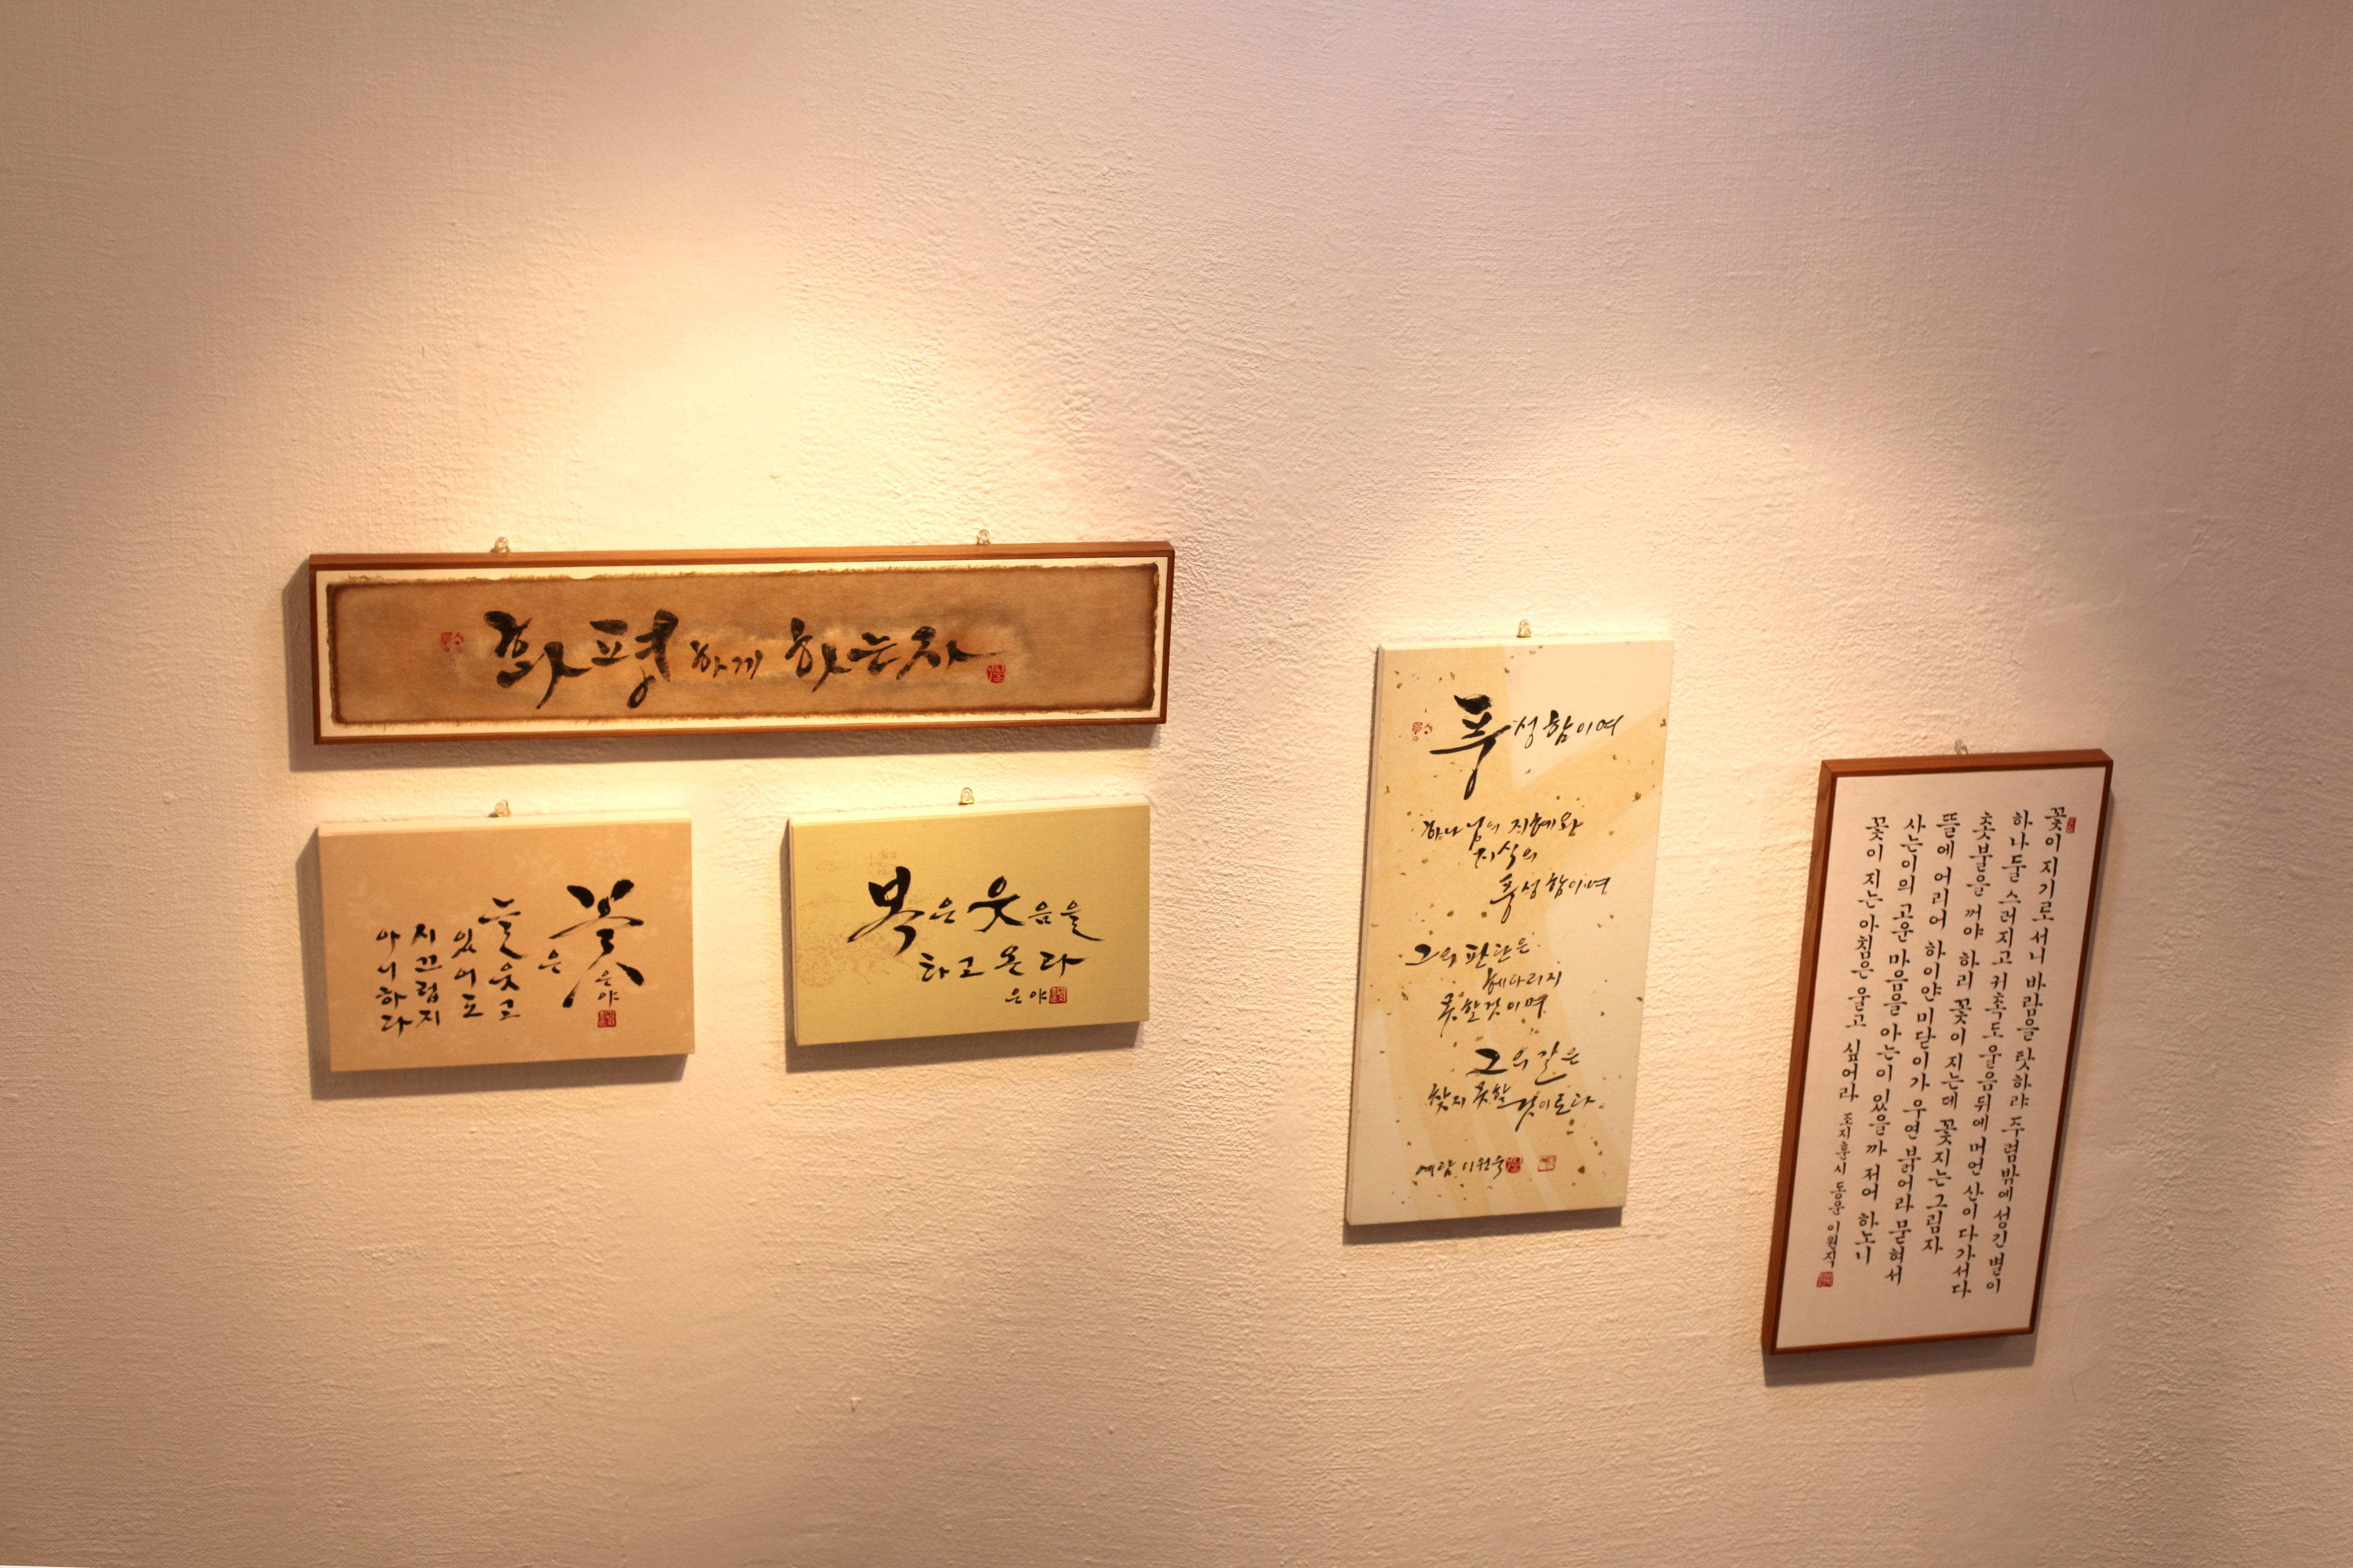 화평하게 하는자
꽃은
늘웃고
있어도
시끄럽지
아니하다
은야
복은 웃음을
타고 온다
은야
풍성함이여
하나님의 지혜와
지식의
풍성함이여
그의 판단은
헤아리지
못할것이며
그의 길은
찾지 못할 것이로다
예람 이원숙
꽃이 지기로서니 바람을 탓하랴 주렴밖에 성긴 별이
하나둘 스러지고 귀촉도 울음뒤에 머언 산이 다가서다
촛불을 꺼야 하리 꽃이 지는데 꽃지는 그림자
뜰에 어리어 하이얀 미닫이가 우련 붉어라 묻혀서
사는이의 고운 마음을 아는이 있을까 저어 하노니
꽃이 지는 아침은 울고 싶어라 조지훈시 동운 이원직